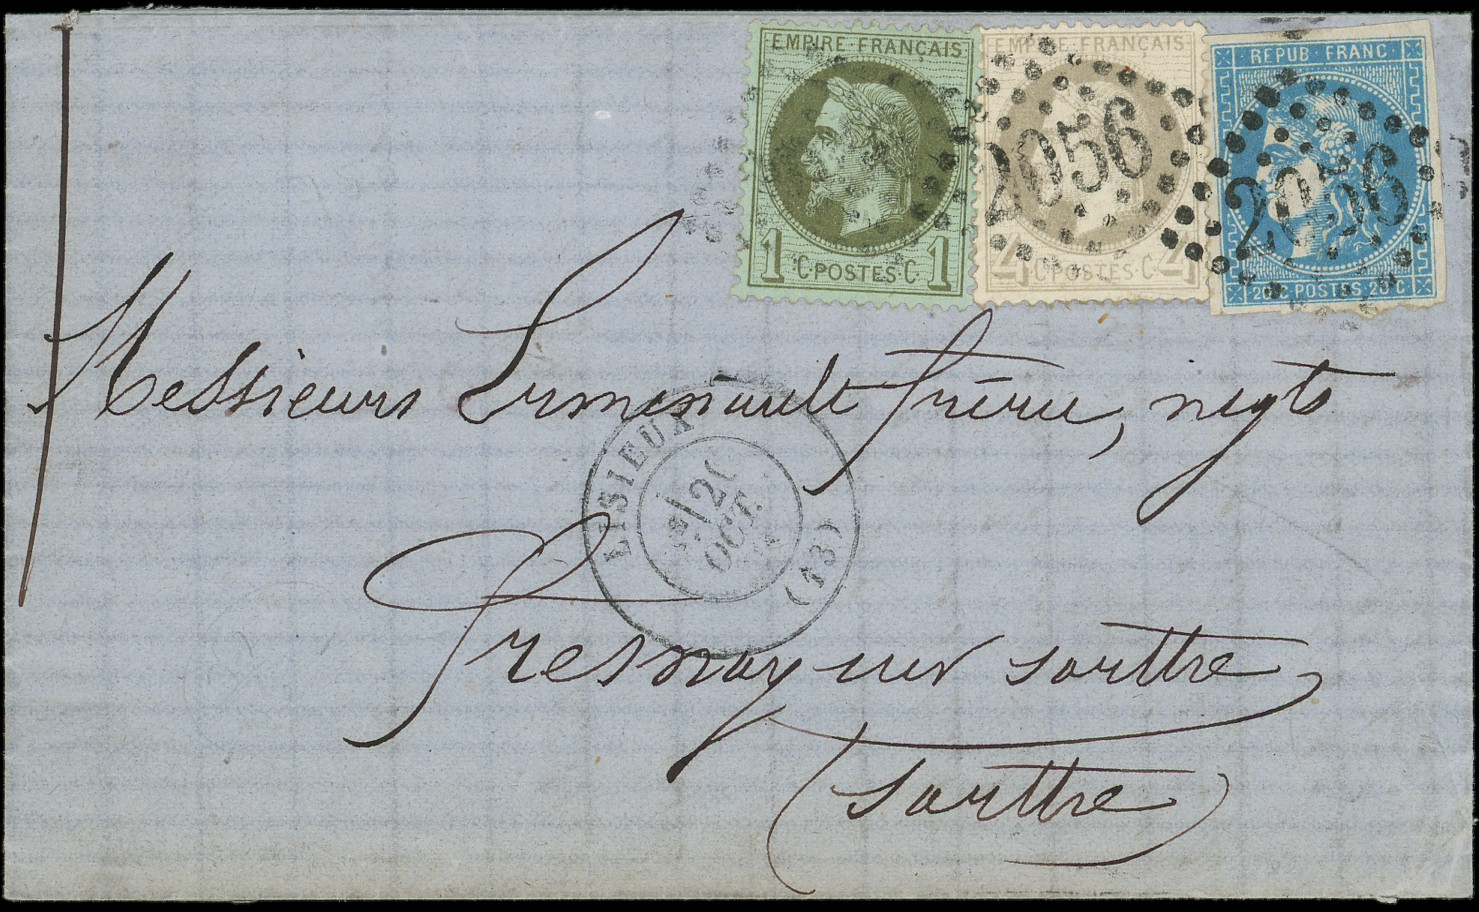 EMPIRE FRANÇAIS
1 C POSTES C. 1
EMPIRE FRANÇAIS
4 C POSTES C 4
2056
REPUB FRANC
20 C. POSTES. 20 C
2056
Messieurs frères, negts
LISIEUX
OCT.
(13)
Fresnay sur sartthe,
(sartthe)